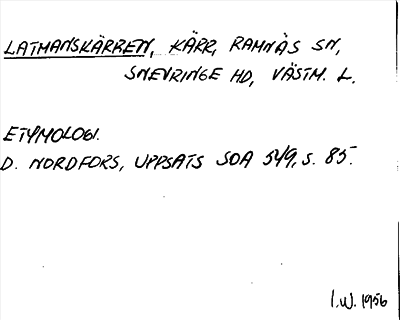 LATMANSKÄRREN, KÄRR, RAMNÄS SN,
SNEVRINGE HD, VÄSTM. L.
ETYMOLOGI.
D. NORDFORS, UPPSATS SOA 549, S. 85.
I.W. 1956